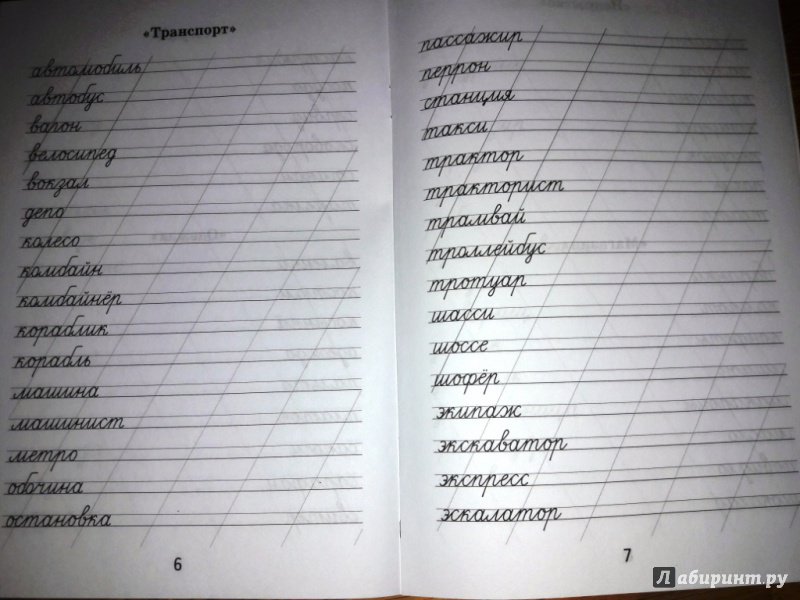 «Транспорт»
автомобиль
автобус
вагон
велосипед
вокзал
депо
колесо
комбайн
комбайнёр
кораблик
корабль
машина
машинист
метро
обочина
остановка
6
пассажир
перрон
станция
такси
трактор
тракторист
трамвай
троллейбус
тротуар
шасси
шоссе
шофёр
экипаж
экскаватор
экспресс
эскалатор
7
Лабиринт.ру